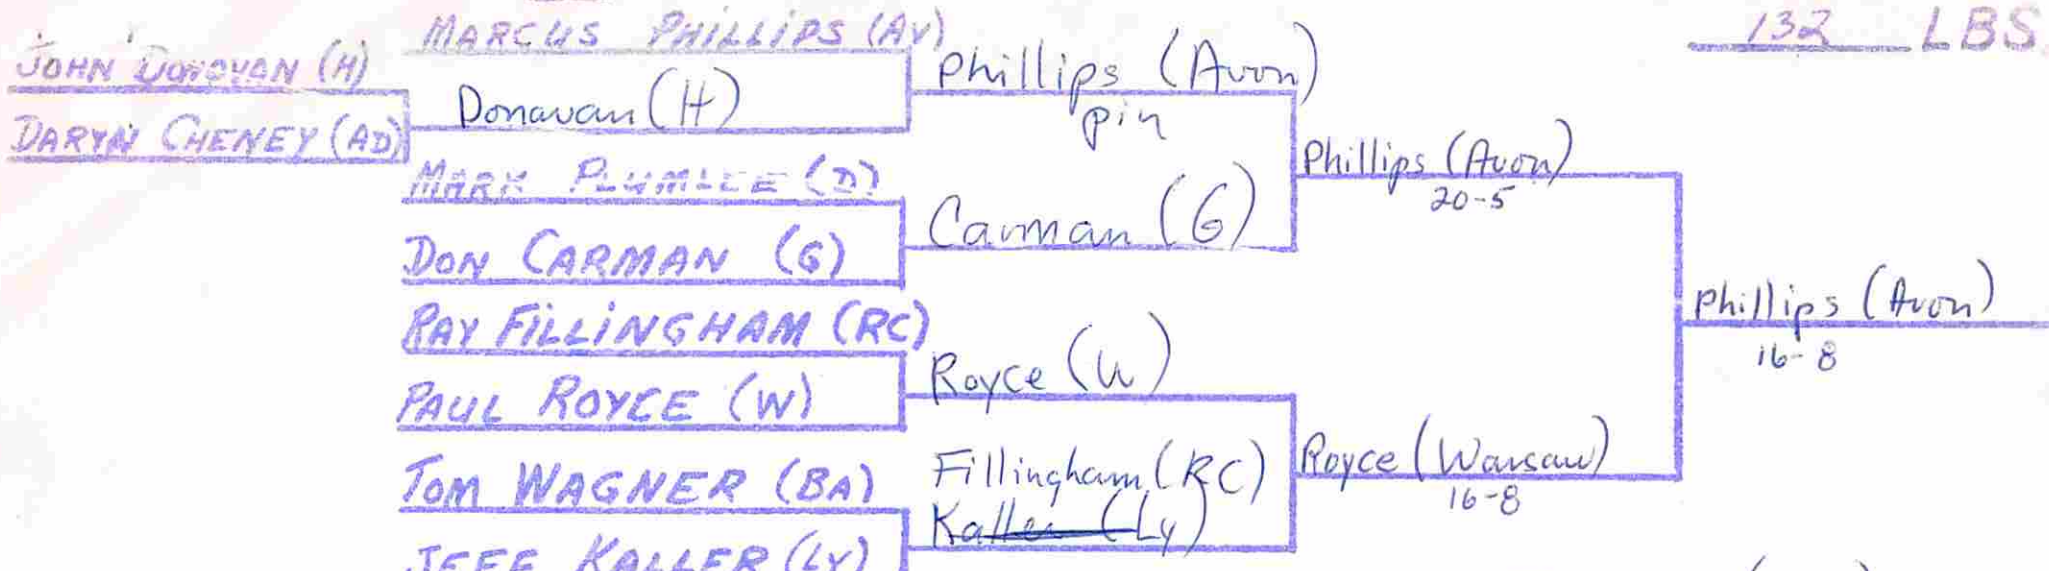 132 LBS.
JOHN DONOVAN (H)
DARYN CHENEY (AD)
MARCUS PHILLIPS (AV)
Donavan (H)
MARK PLUMLEE (D)
DON CARMAN (G)
RAY FILLINGHAM (RC)
PAUL ROYCE (W)
TOM WAGNER (BA)
JEFF KALLER (LY)
Phillips (Avon)
pin
Carman (G)
Royce (W)
Fillingham (RC)
Kaller (Ly)
Phillips (Avon)
20-5
Royce (Warsaw)
16-8
Phillips (Avon)
16-8